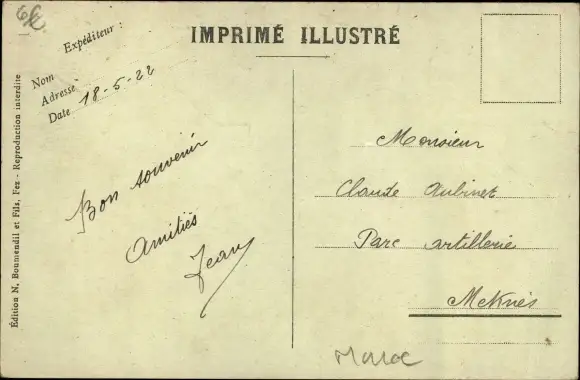 IMPRIMÉ ILLUSTRÉ
Expéditeur :
Nom
Adresse
Date 18-5-22
Bon souvenir
Amitiés
Jean
Monsieur
Claude Aubinet
Parc artillerie
Meknès
Maroc
Édition N. Boumendil et Fils, Fez - Reproduction interdite